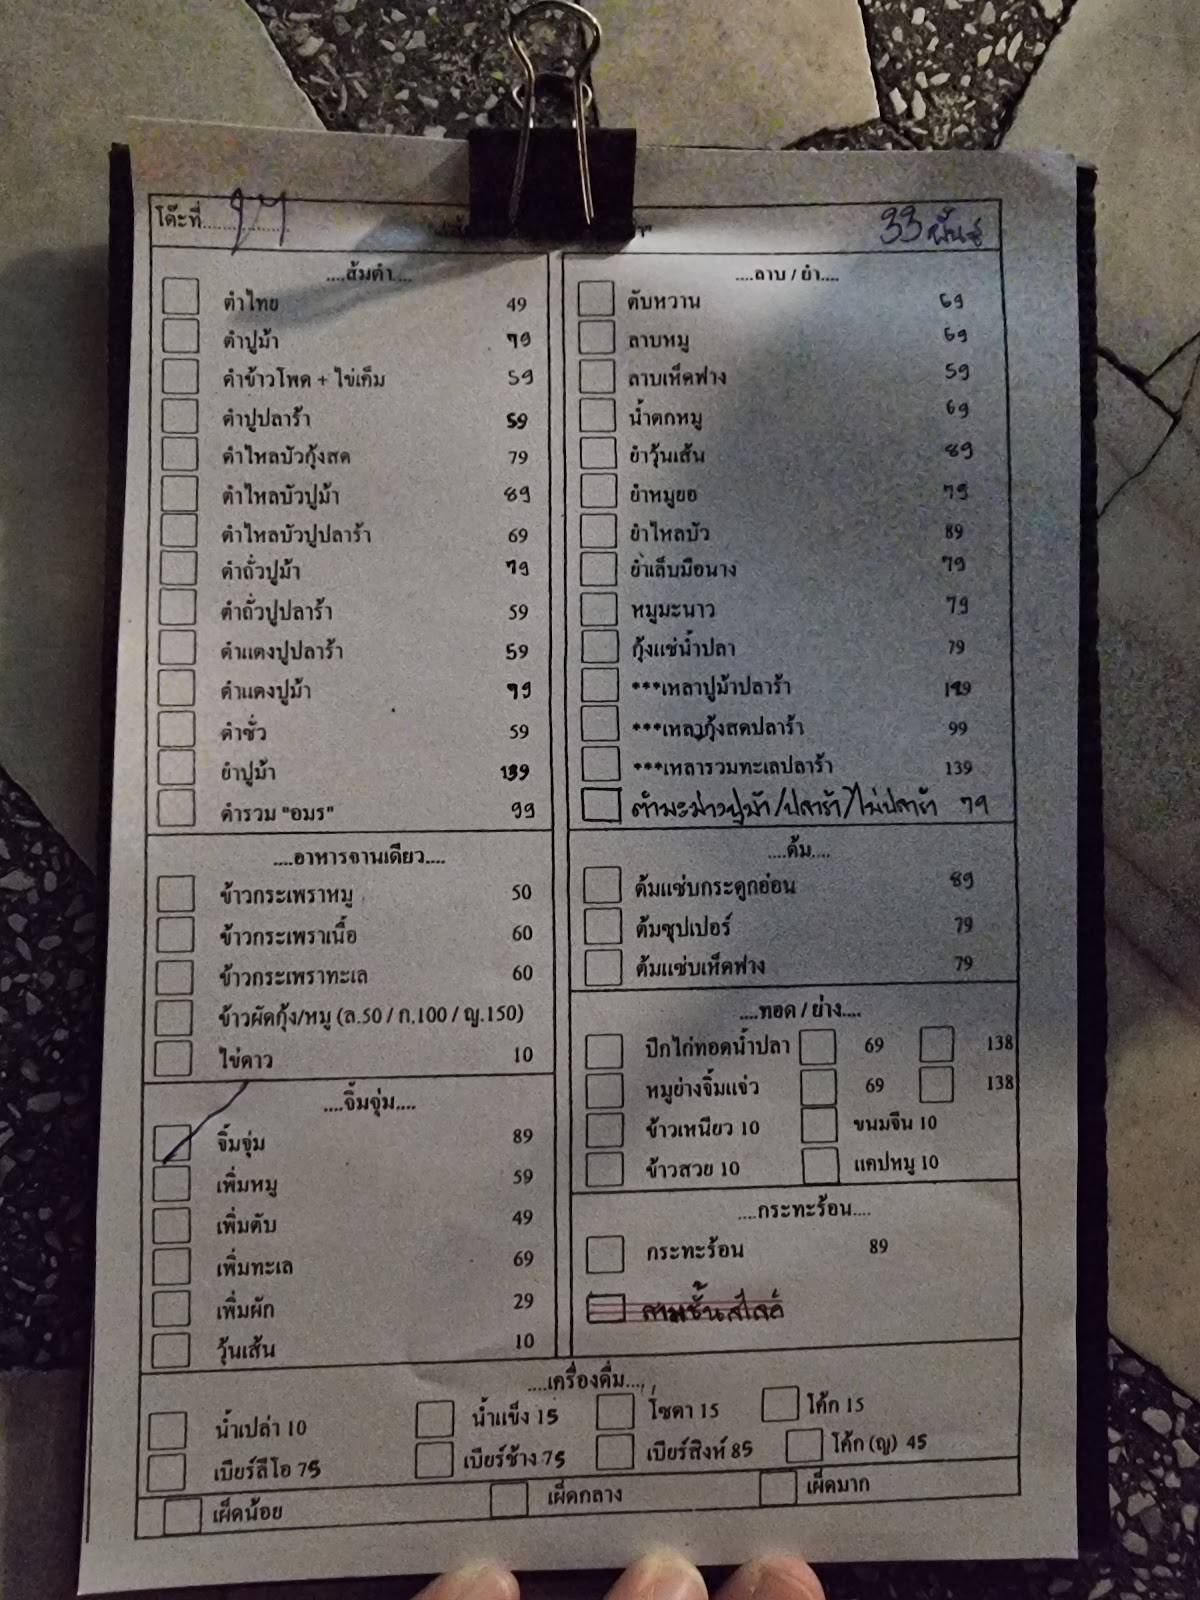 โต๊ะที่
33 พันธุ์
....ส้มตำ....
ตำไทย 49
ตำปูม้า 79
ตำข้าวโพด + ไข่เค็ม 59
ตำปูปลาร้า 59
ตำไหลบัวกุ้งสด 79
ตำไหลบัวปูม้า 89
ตำไหลบัวปูปลาร้า 69
ตำถั่วปูม้า 79
ตำถั่วปูปลาร้า 59
ตำแตงปูปลาร้า 59
ตำแตงปูม้า 79
ตำซั่ว 59
ยำปูม้า 139
ตำรวม "อมร" 99
....อาหารจานเดียว....
ข้าวกระเพราหมู 50
ข้าวกระเพราเนื้อ 60
ข้าวกระเพราทะเล 60
ข้าวผัดกุ้ง/หมู (ล.50 / ก.100 / ญ.150)
ไข่ดาว 10
....จิ้มจุ่ม....
จิ้มจุ่ม 89
เพิ่มหมู 59
เพิ่มตับ 49
เพิ่มทะเล 69
เพิ่มผัก 29
วุ้นเส้น 10
....ลาบ / ยำ....
ตับหวาน 69
ลาบหมู 69
ลาบเห็ดฟาง 59
น้ำตกหมู 69
ยำวุ้นเส้น 89
ยำหมูยอ 79
ยำไหลบัว 89
ยำเล็บมือนาง 79
หมูมะนาว 79
กุ้งแช่น้ำปลา 79
***เหลาปูม้าปลาร้า
***เหลากุ้งสดปลาร้า 99
***เหลารวมทะเลปลาร้า 139
ตำมะม่วงปูม้า/ปลาร้า/ไม่ปลาร้า 79
....ต้ม....
ต้มแซ่บกระดูกอ่อน 89
ต้มซุปเปอร์ 79
ต้มแซ่บเห็ดฟาง 79
....ทอด / ย่าง....
ปีกไก่ทอดน้ำปลา 69 138
หมูย่างจิ้มแจ่ว 69 138
ข้าวเหนียว 10 ขนมจีน 10
ข้าวสวย 10 แคปหมู 10
....กระทะร้อน....
กระทะร้อน 89
สามชั้นสไลด์
....เครื่องดื่ม....
น้ำเปล่า 10 น้ำแข็ง 15 โซดา 15 โค้ก 15
เบียร์ลีโอ 75 เบียร์ช้าง 75 เบียร์สิงห์ 85 โค้ก (ญ) 45
เผ็ดน้อย เผ็ดกลาง เผ็ดมาก